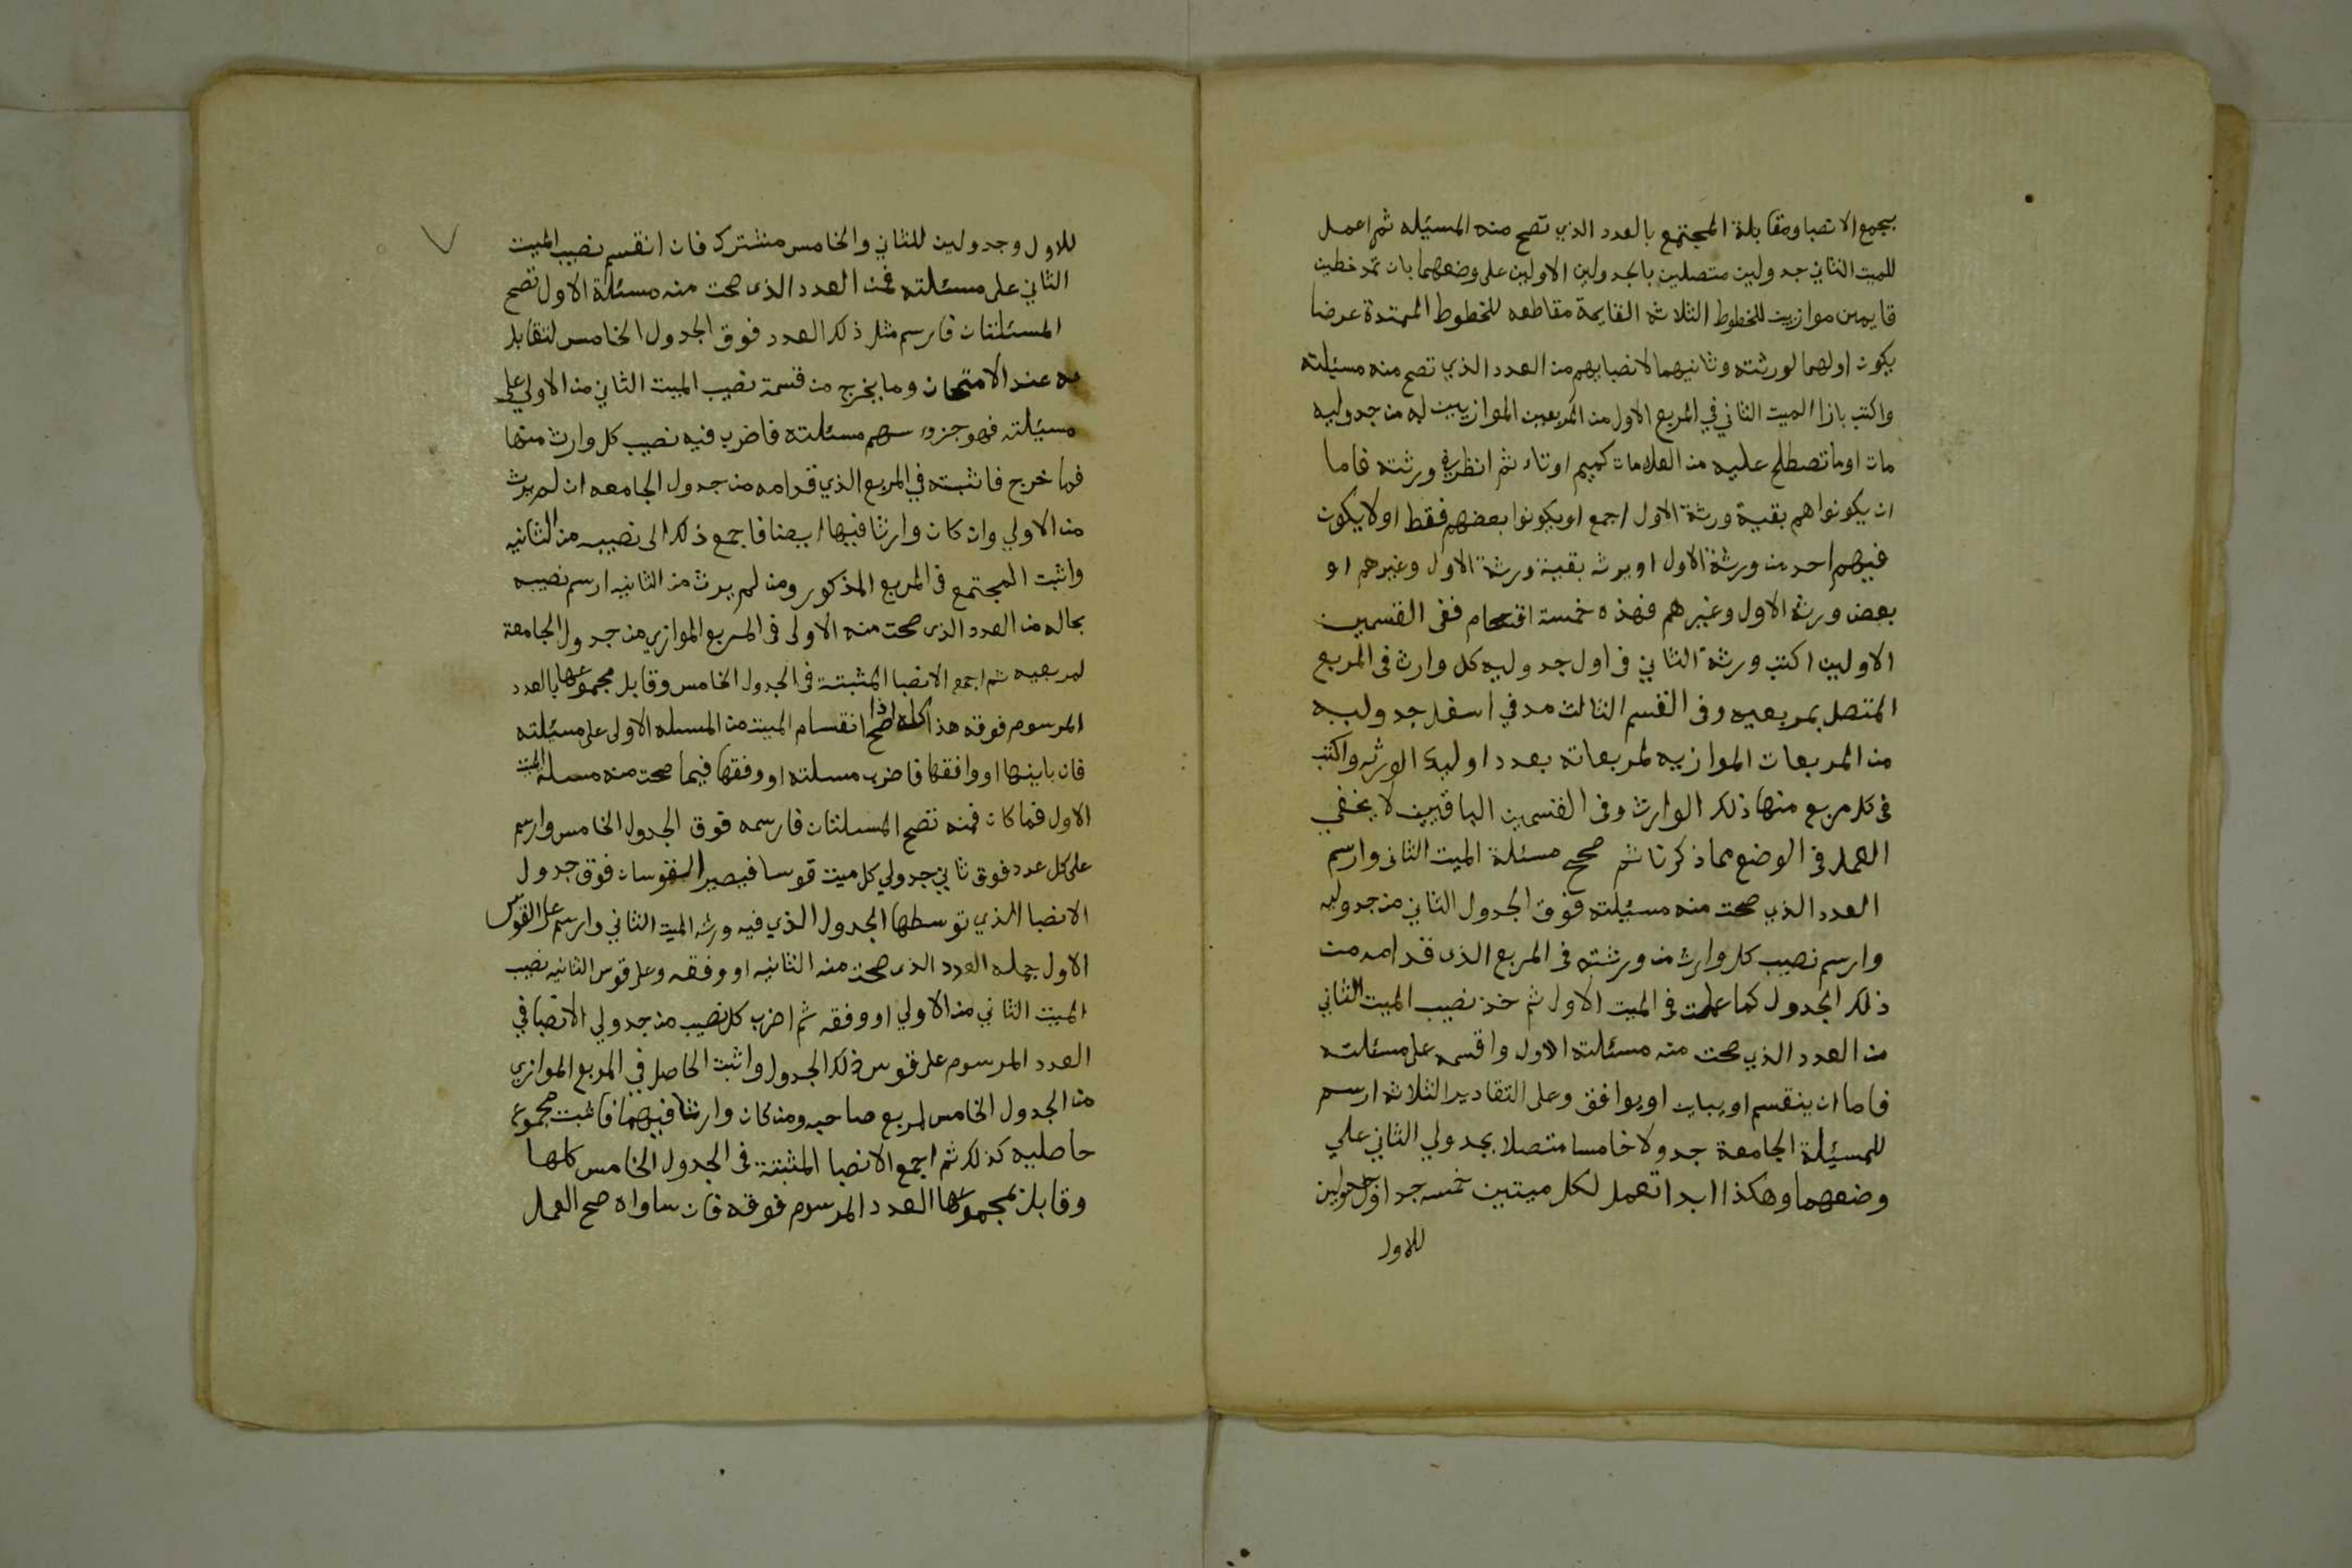 بجمع الانصبا ومقابلة المجتمع بالعدد الذي تصح منه المسئله ثم اعمل
للميت الثاني جدولين متصلين بالجدولين الاولين على وضعهما بان تمد خطين
قايمين موازيين للخطوط الثلاثه القايمة مقاطعه للخطوط الممتدة عرضا
يكون اولهما لورثته وثانيهما لانصبايهم من العدد الذي تصح منه مسئلته
واكتب بازا الميت الثاني في المربع الاول من المربعين الموازيين له من جدوليه
مات او ما تصطلح عليه من العلامات كميم او تاء ثم انظر في ورثته فاما
ان يكونوا هم بقية ورثة الاول اجمع او يكونوا بعضهم فقط او لا يكون
فيهم احد من ورثة الاول او يرث بقية ورثة الاول وغيرهم او
بعض ورثة الاول وغيرهم فهذه خمسة اقسام ففى القسمين
الاولين اكتب ورثة الثاني فى اول جدوليه كل وارث فى المربع
المتصل بمربعيه وفى القسم الثالث مد في اسفل جدوليه
من المربعات الموازيه لمربعاته بعدد اوليك الورثه واكتب
فى كل مربع منها ذلك الوارث وفى القسمين الباقيين لا يخفي
العمل فى الوضع مما ذكرنا ثم صحح مسئلة الميت الثانى وارسم
العدد الذي صحت منه مسئلته فوق الجدول الثاني من جدوليه
وارسم نصيب كل وارث من ورثته فى المربع الذى قدامه من
ذلك الجدول كما علمت فى الميت الاول ثم خذ نصيب الميت الثاني
من العدد الذي صحت منه مسئلته الاول واقسمه على مسئلته
فاما ان ينقسم او يباين او يوافق وعلى التقادير الثلاثه ارسم
للمسئلة الجامعة جدولا خامسا متصلا بجدولي الثاني علي
وضعهما وهكذا ابدا تعمل لكل ميتين خمسه جداول جدولين
للاول
للاول وجدولين للثاني والخامس مشترك فان انقسم نصيب الميت
الثاني على مسئلته فمن العدد الذى صحت منه مسئلة الاول تصح
المسئلتان فارسم مثل ذلك العدد فوق الجدول الخامس لتقابل
به عند الامتحان وما يخرج من قسمة نصيب الميت الثاني من الاولي على
مسئلته فهو جزء سهم مسئلته فاضرب فيه نصيب كل وارث منها
فما خرج فاثبته في المربع الذي قدامه من جدول الجامعه ان لم يرث
من الاولي وان كان وارثا فيها ايضا فاجمع ذلك الى نصيبه من الثانيه
واثبت المجتمع فى المربع المذكور ومن لم يرث من الثانيه ارسم نصيبه
بحاله من العدد الذى صحت منه الاولى فى المربع الموازي من جدول الجامعة
لمربعيه ثم اجمع الانصبا المثبتة فى الجدول الخامس وقابل مجموعها بالعدد
المرسوم فوقه هذا كله اذا صح انقسام الميت من المسله الاولى على مسئلته
فان باينها او وافقها فاضرب مسلته او وفقها فيما صحت منه مسلة الميت
الاول فما كان فمنه تصح المسلتان فارسمه فوق الجدول الخامس وارسم
على كل عدد فوق ثاني جدولي كل ميت قوسا فيصير القوسان فوق جدول
الانصبا الذي توسطها الجدول الذي فيه ورثه الميت الثاني وارسم على القوس
الاول جمله العدد الذى صحت منه الثانيه او وفقه وعلى قوس الثانيه نصيب
الميت الثاني من الاولي او وفقه ثم اضرب كل نصيب من جدولي الانصبا في
العدد المرسوم على قوس ذلك الجدول واثبت الحاصل في المربع الموازي
من الجدول الخامس لمربع صاحبه ومن كان وارثا فيهما فاثبت مجموع
حاصليه كذلك ثم اجمع الانصبا المثبتة فى الجدول الخامس كلها
وقابل بمجموعها العدد المرسوم فوقه فان ساواه صح العمل